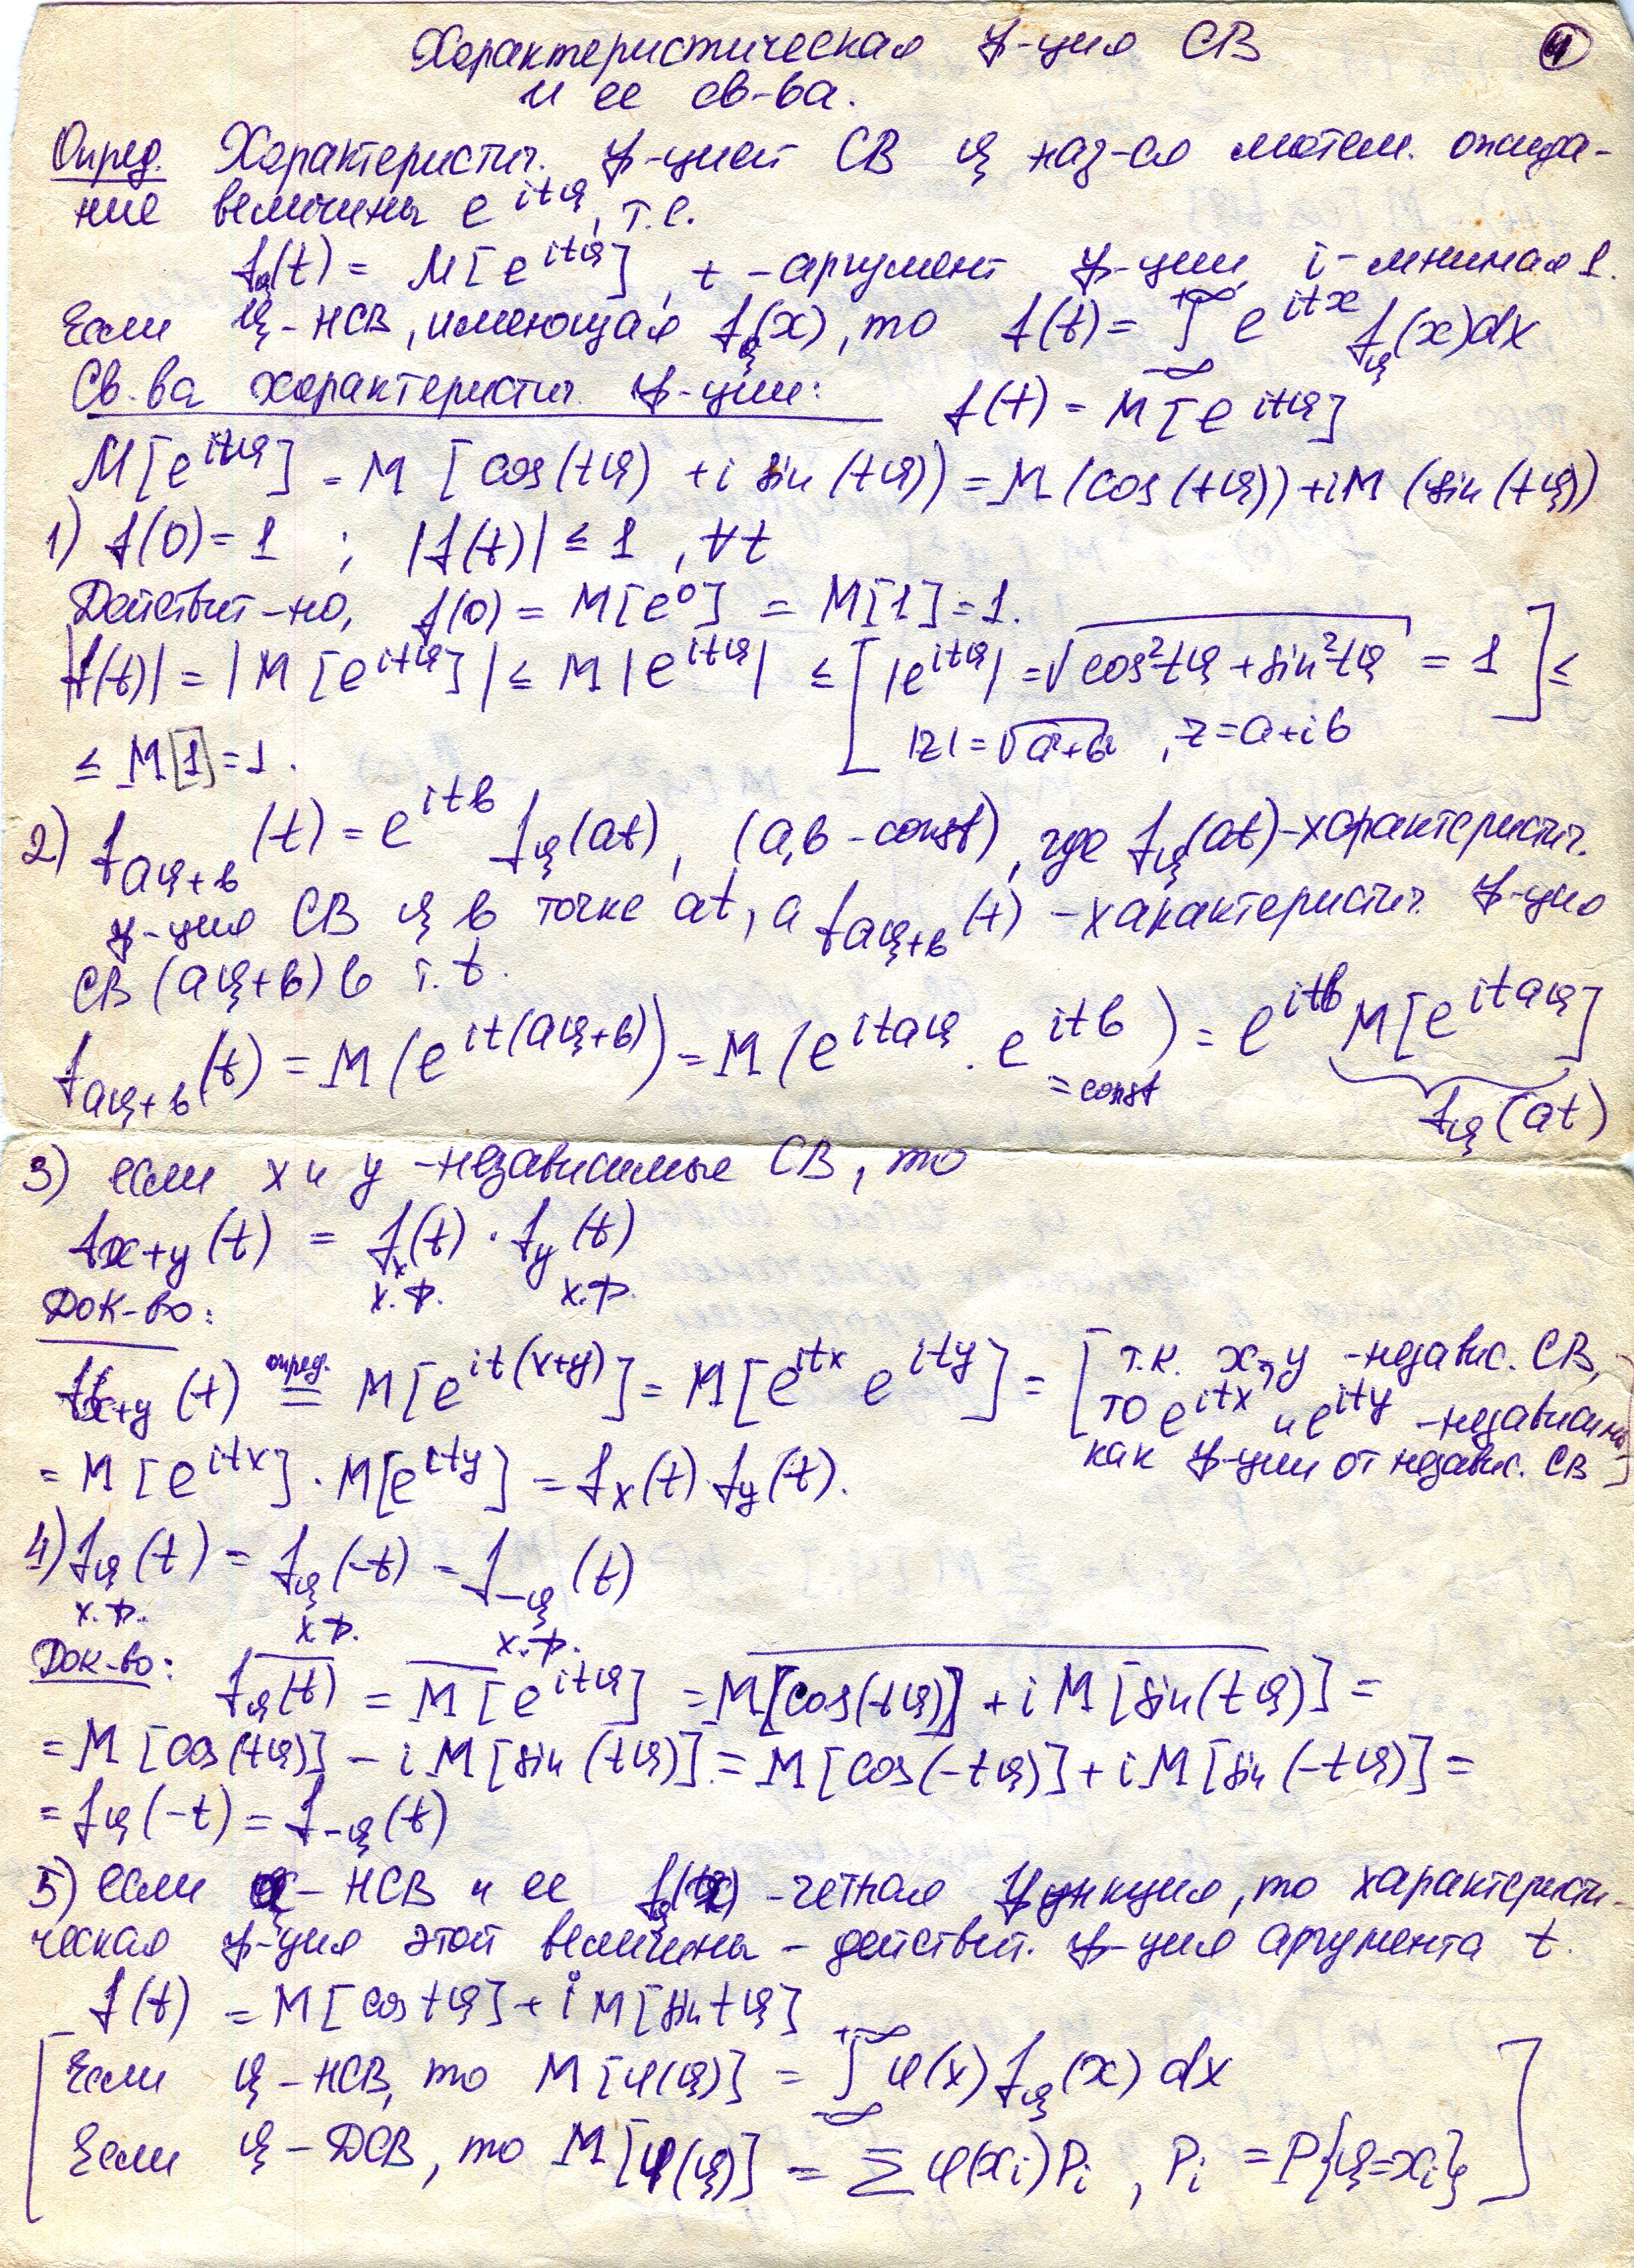 Характеристическая ф-ция СВ ④
и ее св-ва.
Опред. Характеристич. ф-цией СВ ξ наз-ся матем. ожида-
ние величины e^{itξ}, т.е.
f_ξ(t) = M[e^{itξ}], t - аргумент ф-ции, i - мнимая 1.
Если ξ - НСВ, имеющая f_ξ(x), то f(t) = ∫_{-∞}^{+∞} e^{itx} f_ξ(x)dx
Св-ва характеристич. ф-ции: f(t) = M[e^{itξ}]
M[e^{itξ}] = M[cos(tξ) + i sin(tξ)) = M(cos(tξ)) + iM(sin(tξ))
1) f(0) = 1 ; |f(t)| ≤ 1, ∀t
Действит-но, f(0) = M[e^0] = M[1] = 1.
|f(t)| = |M[e^{itξ}]| ≤ M|e^{itξ}| ≤ [|e^{itξ}| = √(cos²tξ + sin²tξ) = 1] ≤
≤ M[1] = 1. |z| = √(a²+b²), z = a+ib
2) f_{aξ+b}(t) = e^{itb} f_ξ(at), (a,b - const), где f_ξ(at) - характеристич.
ф-ция СВ ξ в точке at, а f_{aξ+b}(t) - характеристич. ф-ция
СВ (aξ+b) в т. t.
f_{aξ+b}(t) = M(e^{it(aξ+b)}) = M(e^{itaξ} · e^{itb}) = e^{itb} M[e^{itaξ}]
= const f_ξ(at)
3) если x и y - независимые СВ, то
f_{x+y}(t) = f_x(t) · f_y(t)
х.ф. х.ф.
Док-во:
f_{x+y}(t) опред. = M[e^{it(x+y)}] = M[e^{itx} e^{ity}] = [т.к. x, y - независ. СВ,
то e^{itx} и e^{ity} - независимы
как ф-ции от независ. СВ]
= M[e^{itx}] · M[e^{ity}] = f_x(t) f_y(t).
4) f_ξ(t) = f_ξ(-t) = f_{-ξ}(t)
х.ф. х.ф. х.ф.
Док-во: f_ξ(t) = M[e^{itξ}] = M[cos(tξ)] + i M[sin(tξ)] =
= M[cos(tξ)] - i M[sin(tξ)] = M[cos(-tξ)] + i M[sin(-tξ)] =
= f_ξ(-t) = f_{-ξ}(t)
5) если ξ - НСВ и ее f_ξ(x) - четная функция, то характеристи-
ческая ф-ция этой величины - действит. ф-ция аргумента t.
f(t) = M[cos tξ] + i M[sin tξ]
[Если ξ - НСВ, то M[φ(ξ)] = ∫_{-∞}^{+∞} φ(x) f_ξ(x) dx
Если ξ - ДСВ, то M[φ(ξ)] = Σ φ(x_i) P_i, P_i = P{ξ=x_i}]